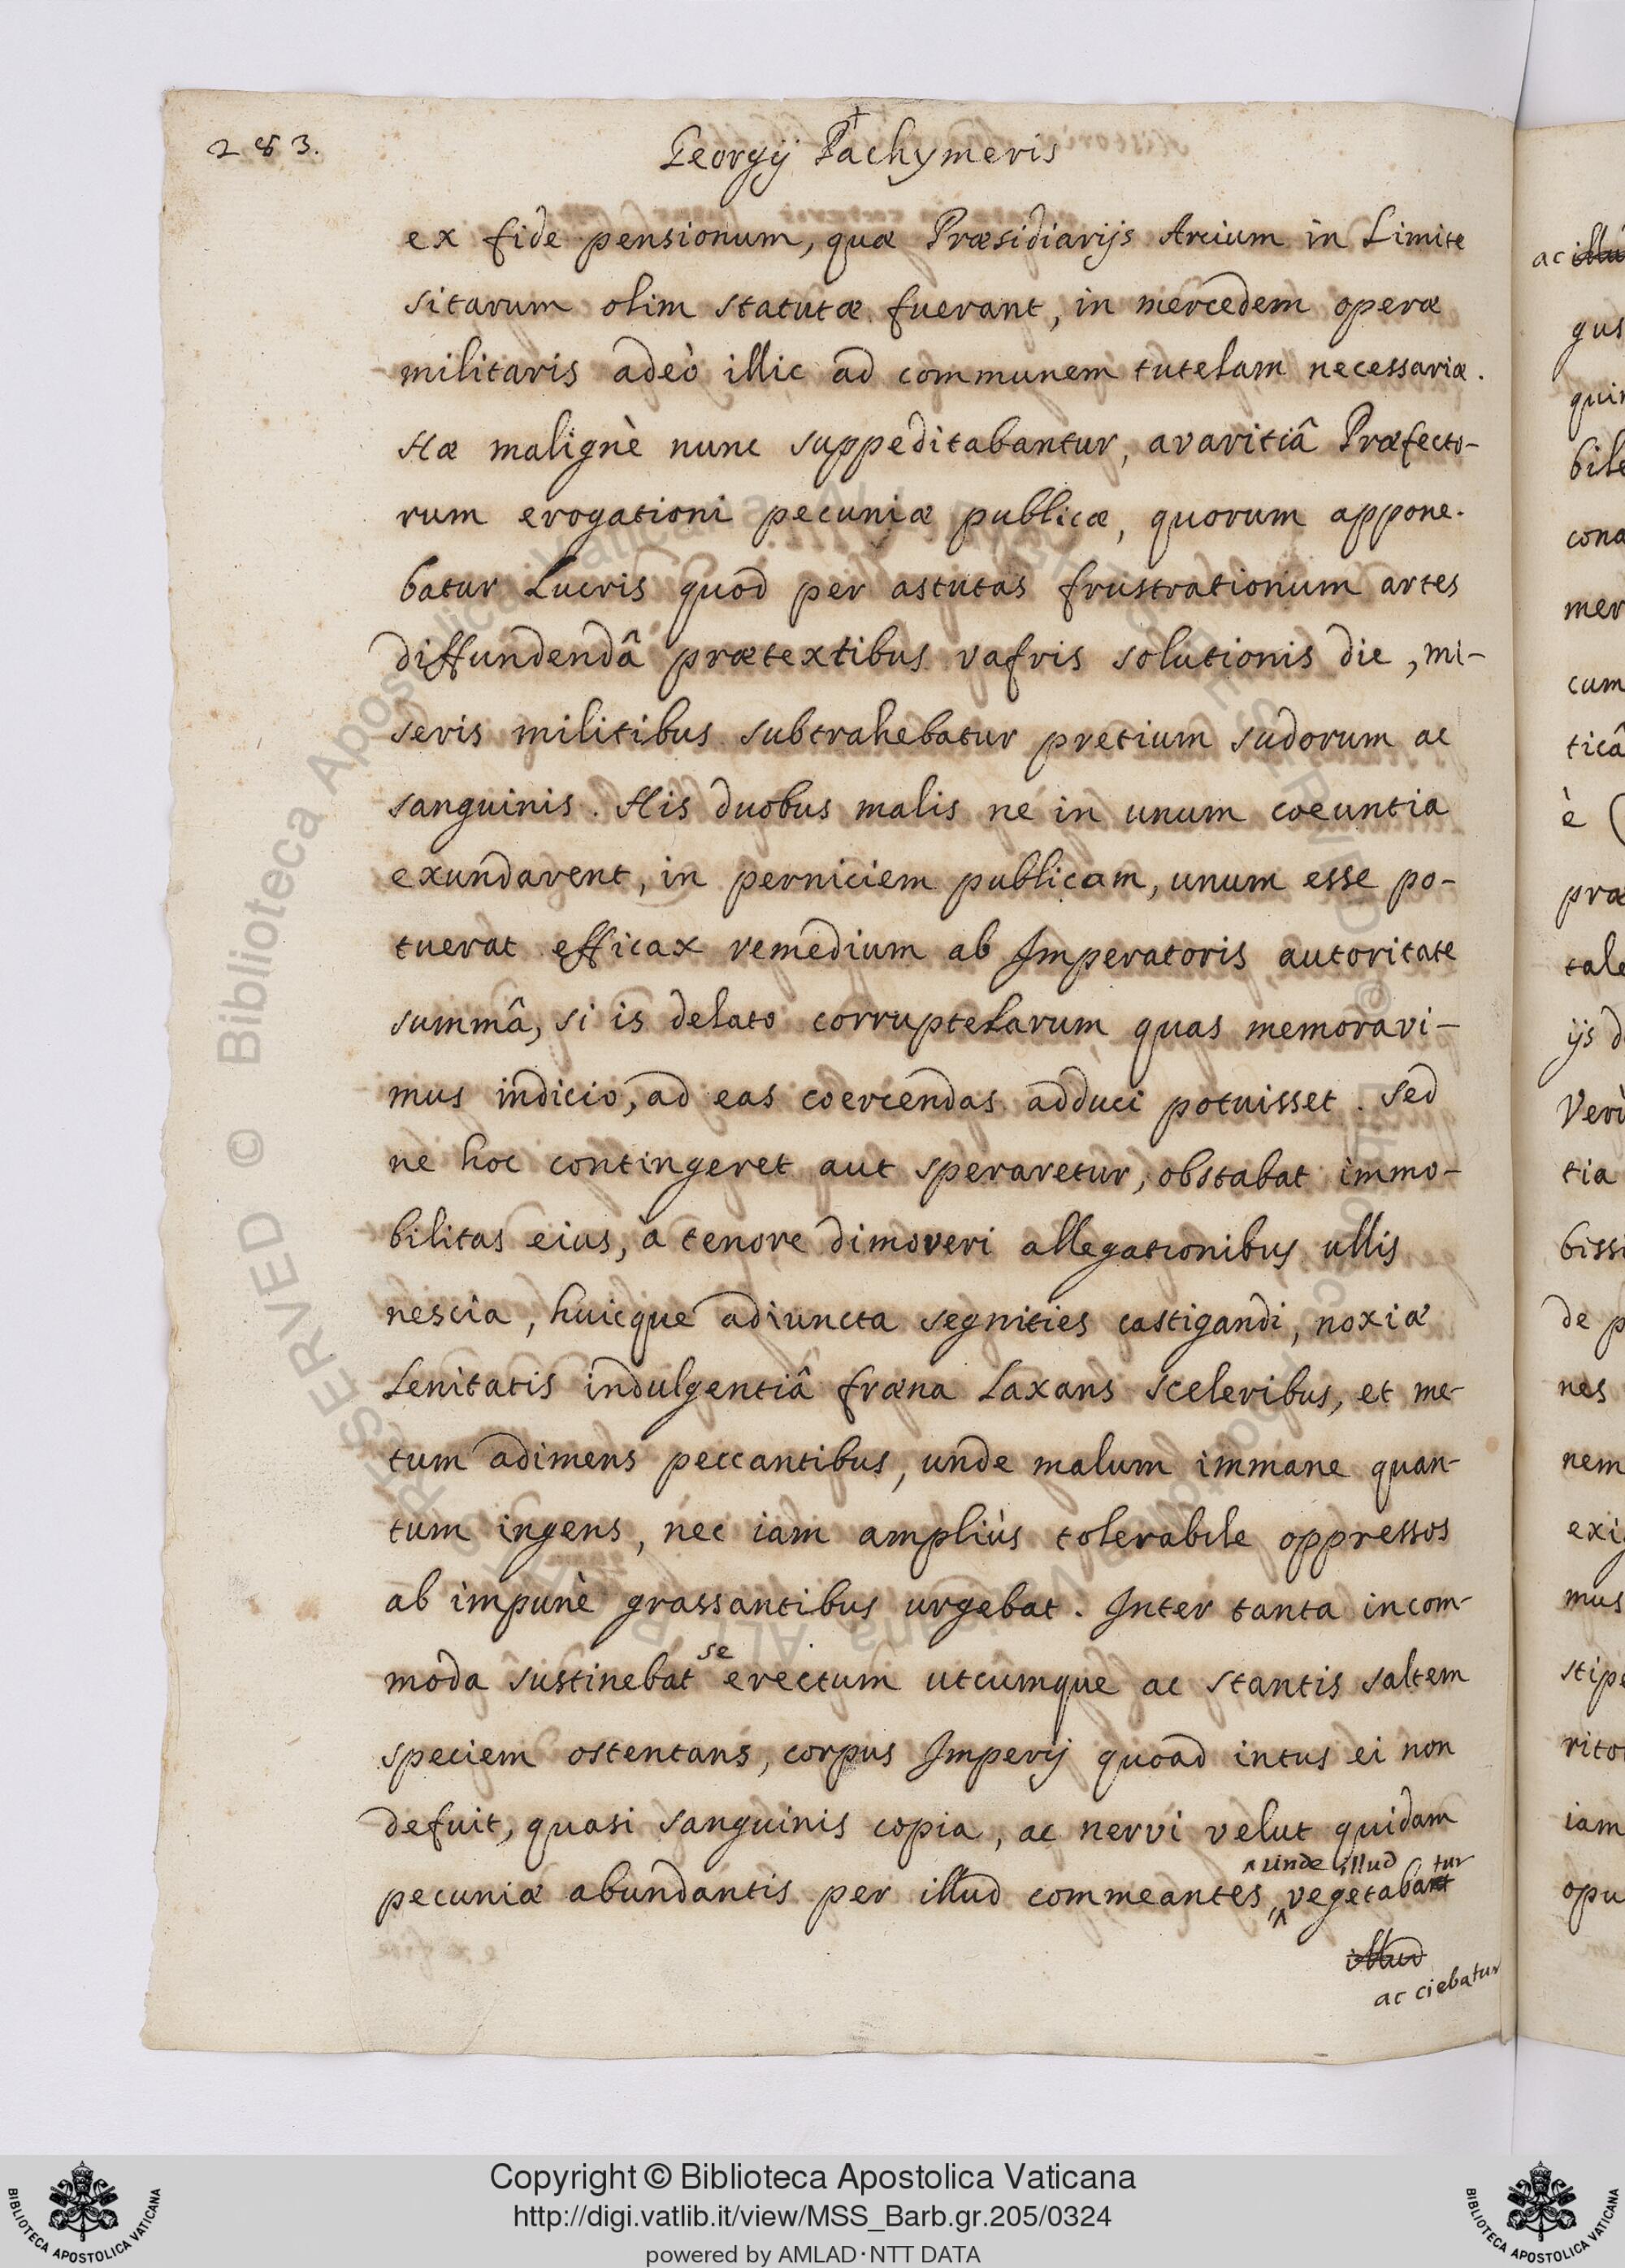 283.
Georgij Pachymeris
ex fide pensionum, quæ Præsidiarijs Arcium in Limite
sitarum olim statutæ fuerant, in mercedem operæ
militaris adeò illic ad communem tutelam necessariæ.
Hæ malignè nunc suppeditabantur, avaritiâ Præfecto-
rum erogationi pecuniæ publicæ, quorum appone-
batur Lucris quod per astutas frustrationum artes
diffundendâ prætextibus vafris solutionis die, mi-
seris militibus subtrahebatur pretium sudorum ac
sanguinis. His duobus malis ne in unum coeuntia
exundarent, in perniciem publicam, unum esse po-
tuerat efficax remedium ab Imperatoris autoritate
summâ, si is delato corruptelarum quas memoravi-
mus indicio, ad eas coercendas adduci potuisset. Sed
ne hoc contingeret aut speraretur, obstabat immo-
bilitas eius, à tenore dimoveri allegationibus ullis
nescia, huicque adiuncta segnities castigandi, noxiæ
Lenitatis indulgentiâ fræna Laxans sceleribus, et me-
tum adimens peccantibus, unde malum immane quan-
tum ingens, nec iam ampliùs tolerabile oppressos
ab impunè grassantibus urgebat. Inter tanta incom-
moda sustinebat se erectum utcumque ac stantis saltem
speciem ostentans, corpus Imperij quoad intus ei non
defuit, quasi sanguinis copia, ac nervi velut quidam
pecuniæ abundantis per illud commeantes, unde illud vegetabatur
illud
ac ciebatur
ac illud
gus
quin
bile
cona
mer
cum
ticâ
è (
præ
tale
ijs d
Verù
tia
bissi
de p
nes
nem
exig
mus
stipe
rito
iam
opu
© Biblioteca Apostolica Vaticana ALL RIGHTS RESERVED
Copyright © Biblioteca Apostolica Vaticana
http://digi.vatlib.it/view/MSS_Barb.gr.205/0324
powered by AMLAD·NTT DATA
BIBLIOTECA APOSTOLICA VATICANA
BIBLIOTECA APOSTOLICA VATICANA